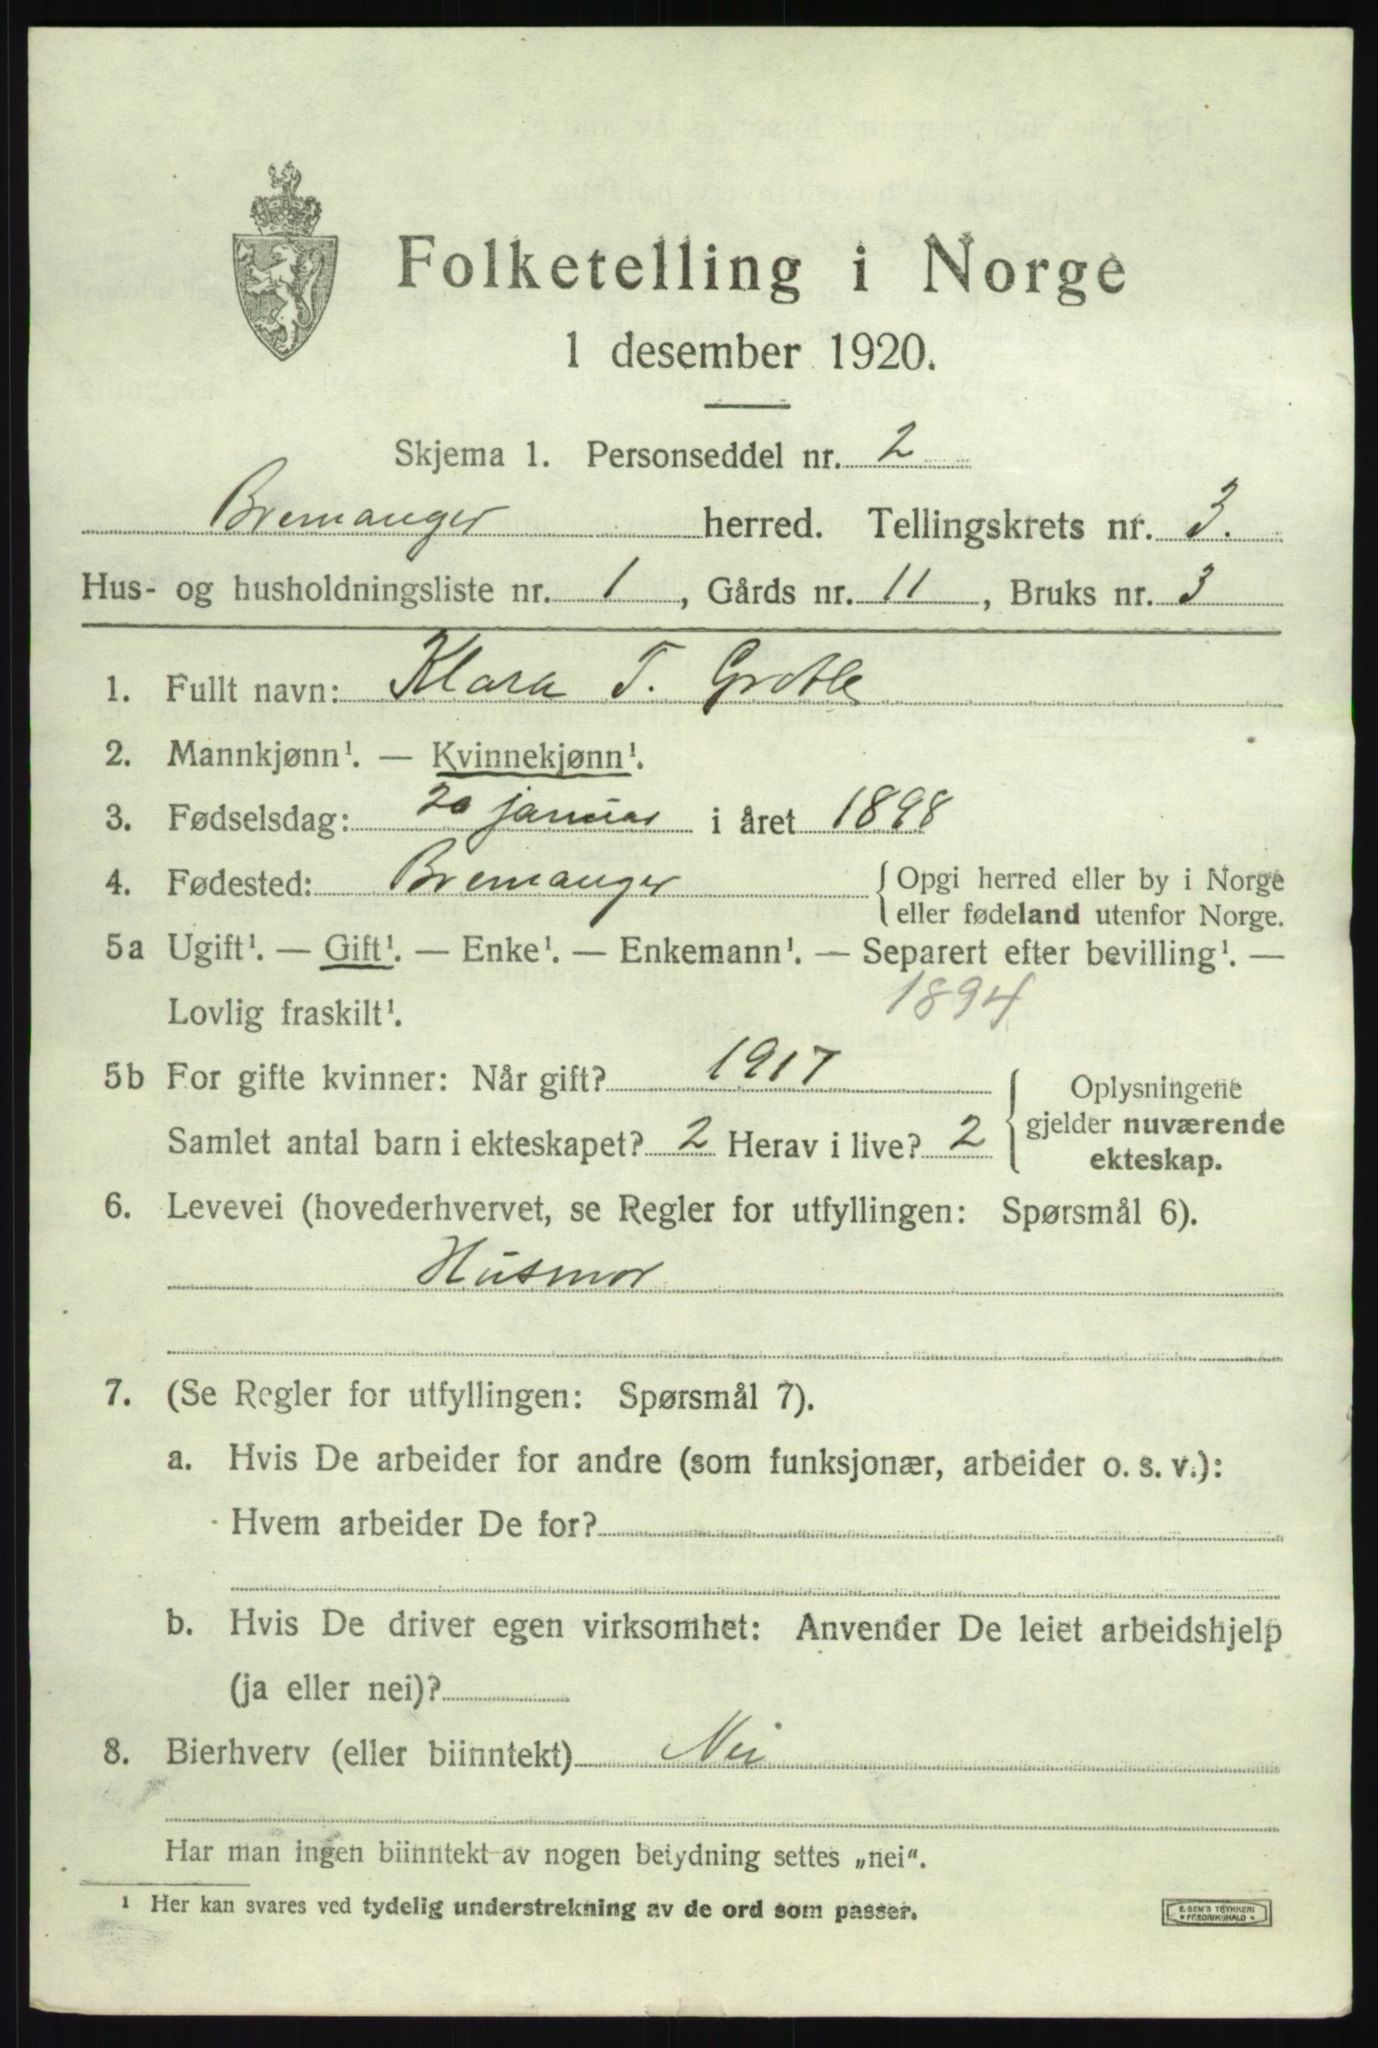 Folketelling i Norge
1 desember 1920.
Skjema 1. Personseddel nr. 2
Bremanger herred. Tellingskrets nr. 3.
Hus- og husholdningsliste nr. 1, Gårds nr. 11, Bruks nr. 3
1. Fullt navn: Klara T. Grotle
2. Mannkjønn¹. — Kvinnekjønn¹.
3. Fødselsdag: 20 januar i året 1898
4. Fødested: Bremanger { Opgi herred eller by i Norge
eller fødeland utenfor Norge.
5a Ugift¹. — Gift¹. — Enke¹. — Enkemann¹. — Separert efter bevilling¹. —
Lovlig fraskilt¹. 1894
5b For gifte kvinner: Når gift? 1917
Samlet antal barn i ekteskapet? 2 Herav i live? 2
Oplysningene
gjelder nuværende
ekteskap.
6. Levevei (hovederhvervet, se Regler for utfyllingen: Spørsmål 6).
Husmor
7. (Se Regler for utfyllingen: Spørsmål 7).
a. Hvis De arbeider for andre (som funksjonær, arbeider o. s. v.):
Hvem arbeider De for?
b. Hvis De driver egen virksomhet: Anvender De leiet arbeidshjelp
(ja eller nei)?
8. Bierhverv (eller biinntekt) Nei
Har man ingen biinntekt av nogen betydning settes „nei".
¹ Her kan svares ved tydelig understrekning av de ord som passer.
E. SEM'S TRYKKERI
FREDRIKSHALD